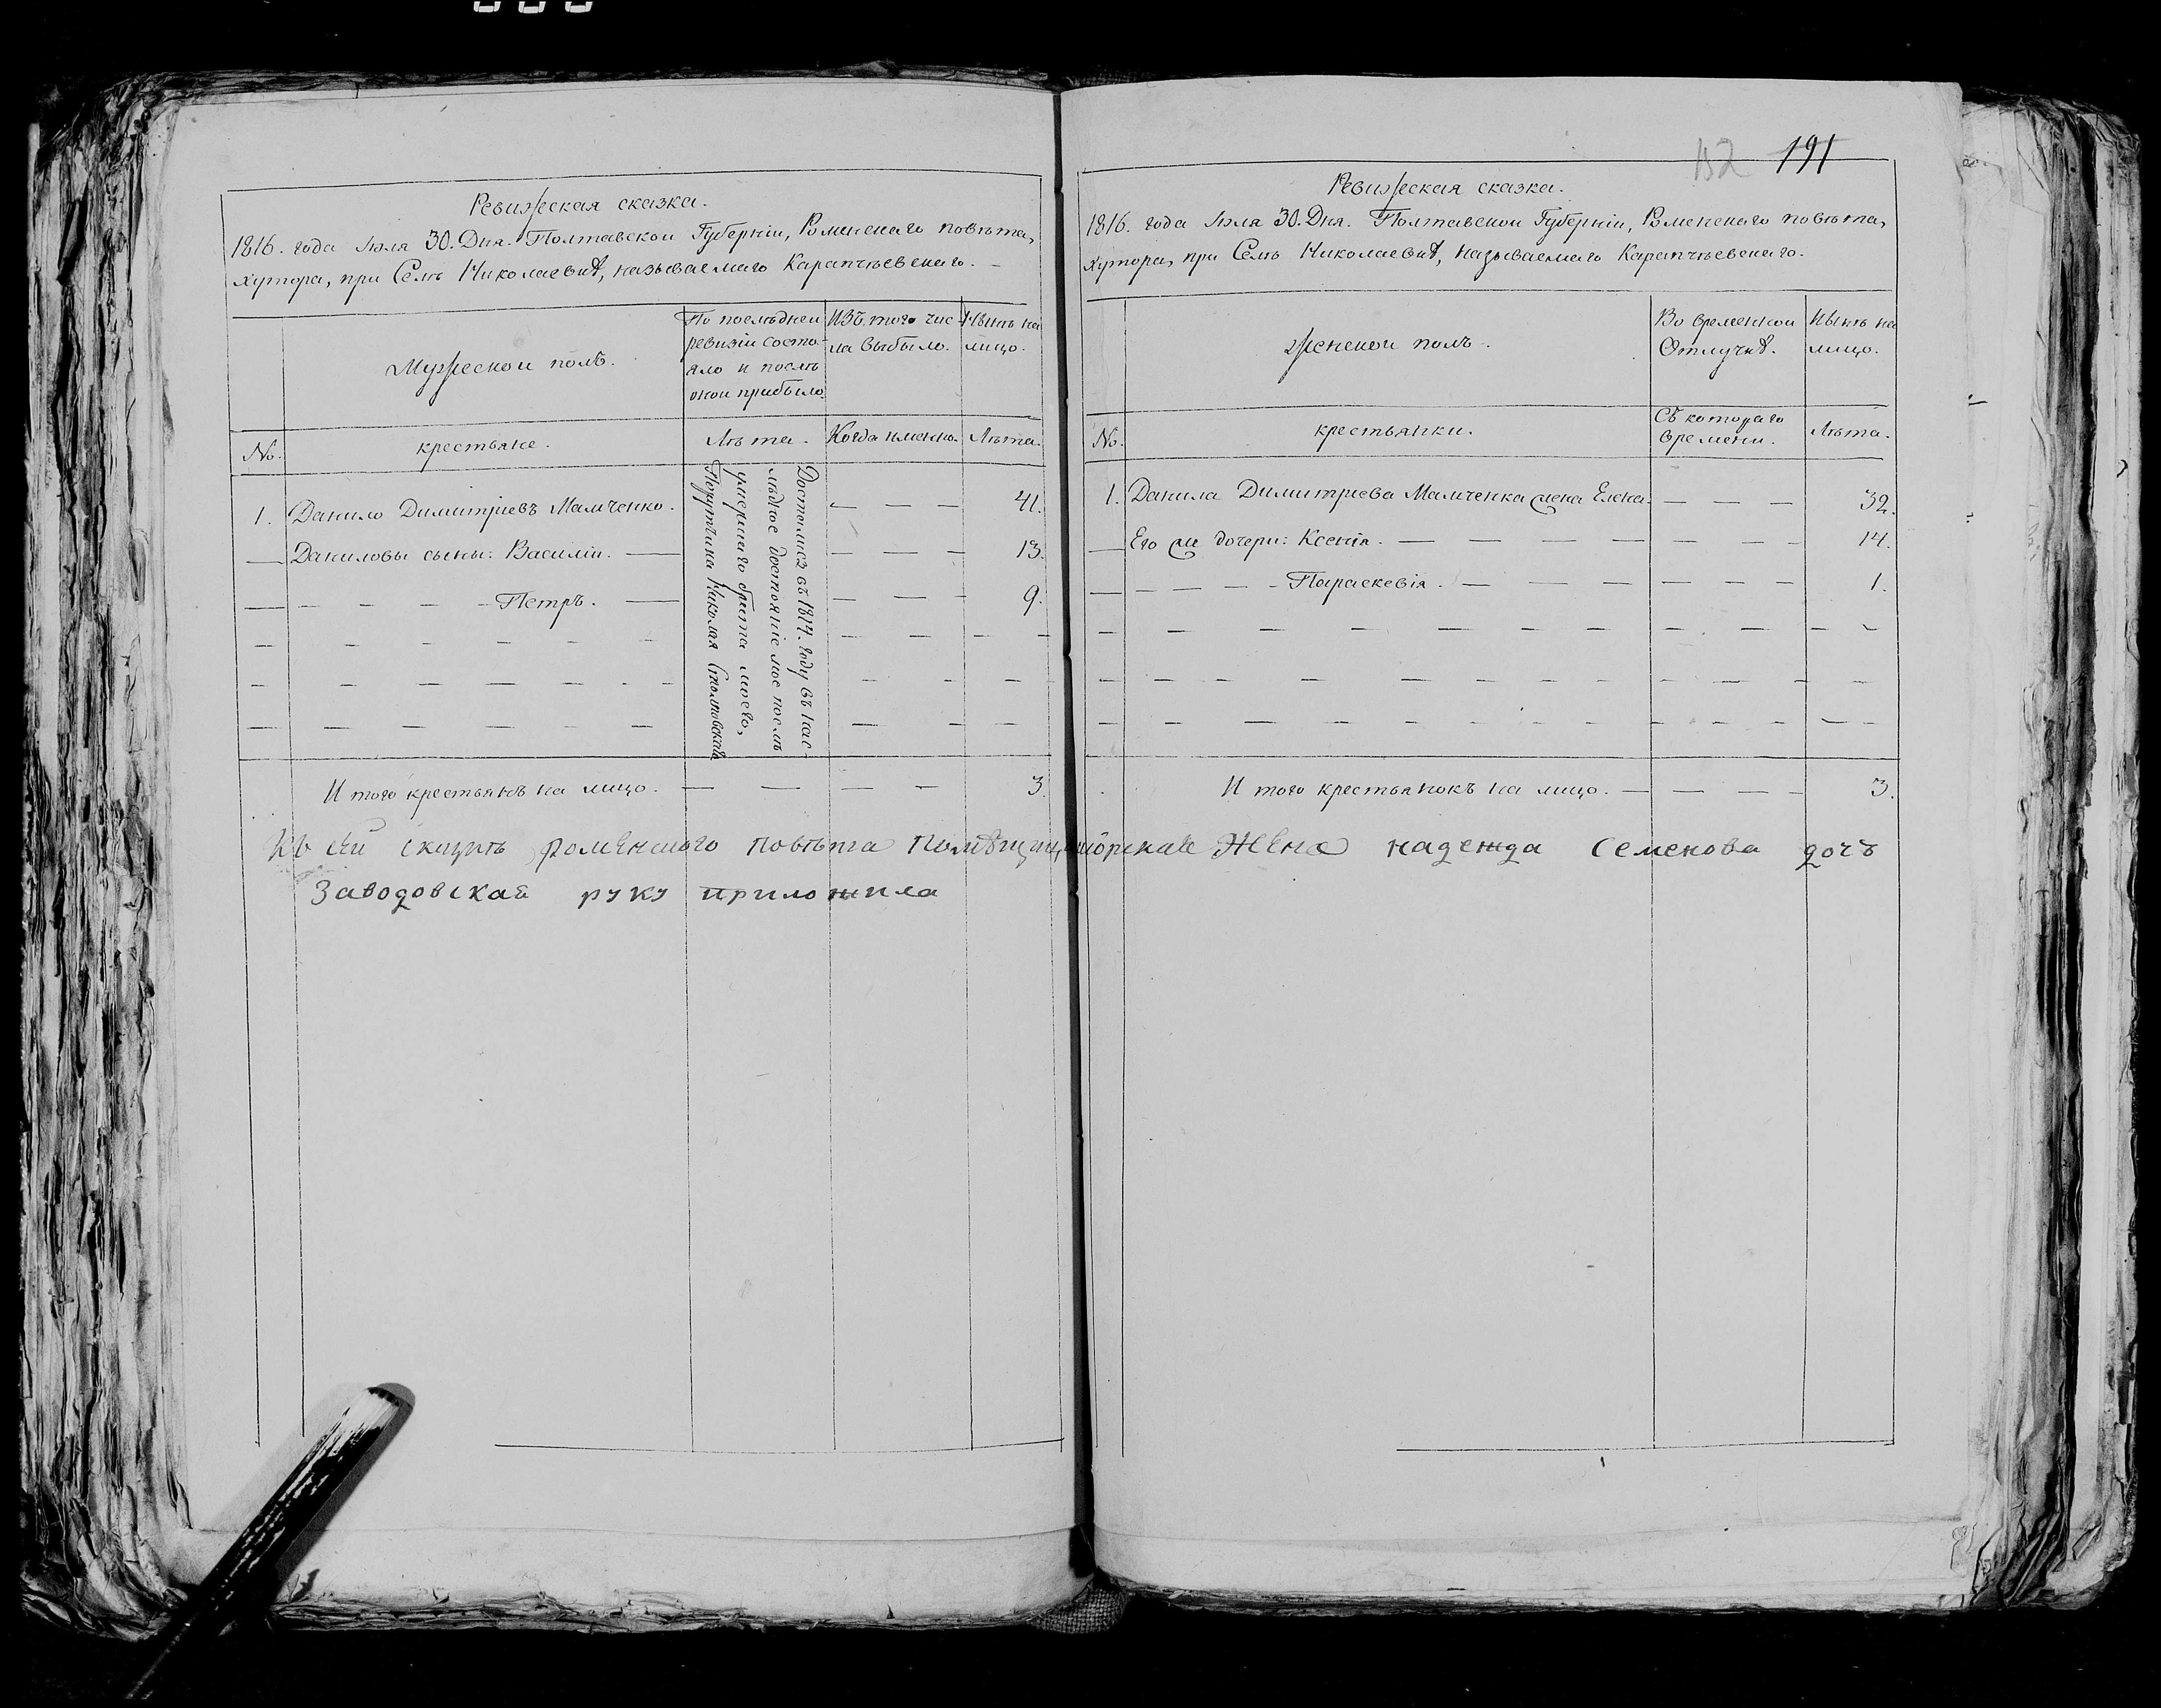 Ревижская сказка.
1816. года Іюля 30. Дня. Полтавскои Губерніи, Роменскаго повѣта,
хутора, при Селѣ Николаевкѣ, называемаго Карапчѣевскаго.
Мужескои полъ.
По послѣднеи
ревизіи состо-
яло и послѣ
онои прибыло
Изъ того чис-
ла выбыло.
Нынѣ на
лицо.
№.
крестьяне.
Лѣта.
Когда имянно.
Лѣта.
1. Данило Димитріевъ Мамченко. — — — 41.
Даниловы сыны: Василіи. — — — 13.
Петръ. — — — 9.
Достались въ 1814. году въ нас-
лѣдное достояніе мое послѣ
умершаго брата моего,
Порутчика Николая
И того крестьянъ на лицо. — — — — 3.
152 191
Ревижская сказка.
1816. года Іюля 30. Дня. Полтавскои Губерніи, Роменскаго повѣта,
хутора, при Селѣ Николаевкѣ, называемаго Карапчѣевскаго.
женскои полъ.
Во временнои
Отлучкѣ.
Нынѣ на
лицо.
№.
крестьянки.
Съ котораго
времени.
Лѣта.
1. Данила Димитріева Мамченка жена Елена — — — 32.
Его же дочери: Ксенія. — — — 14.
Параскевія. — — — 1.
И того крестьянокъ на лицо. — — — — 3.
Къ сей сказкѣ роменского повѣта жена надежда семенова дочъ
Заводовская руку приложила